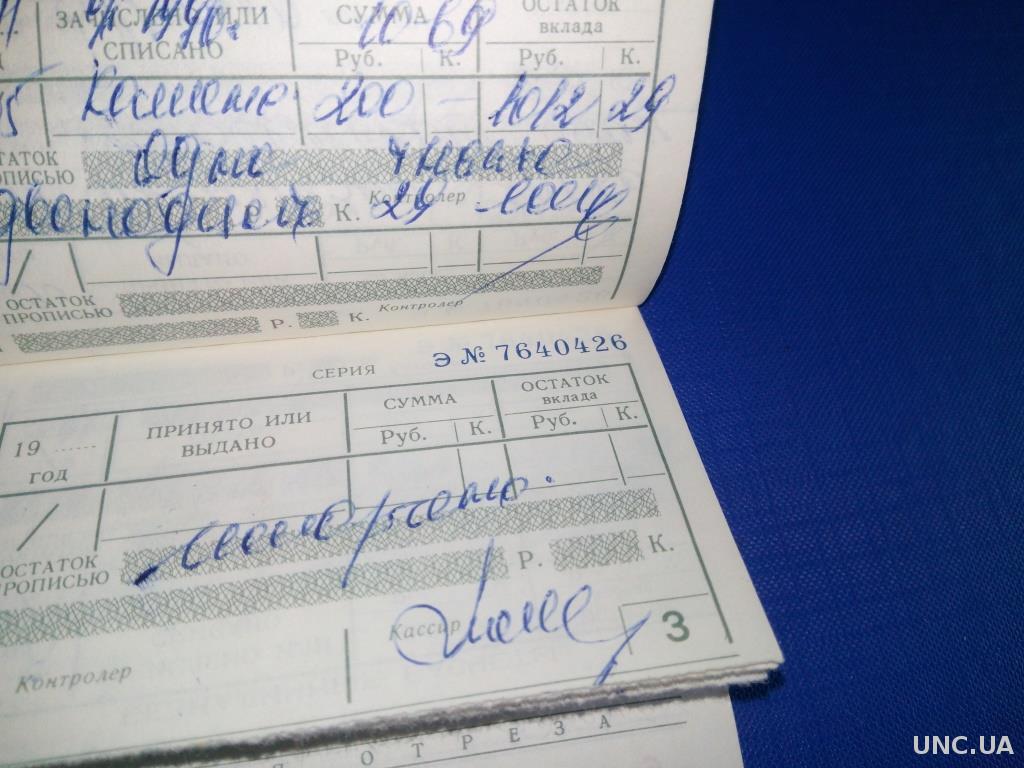 ЗАЧИСЛЕНО ИЛИ СПИСАНО
СУММА
ОСТАТОК вклада
Руб. К. Руб. К.
200 — 1012 29
ОСТАТОК ПРОПИСЬЮ
Одна тысяча
К. 29
Контролер
ОСТАТОК ПРОПИСЬЮ
Контролер
Р. К.
СЕРИЯ Э № 7640426
19 ...... год
ПРИНЯТО ИЛИ ВЫДАНО
СУММА
ОСТАТОК вклада
Руб. К. Руб. К.
ОСТАТОК ПРОПИСЬЮ
Р. К.
Контролер
Кассир
3
ОТРЕЗА
UNC.UA